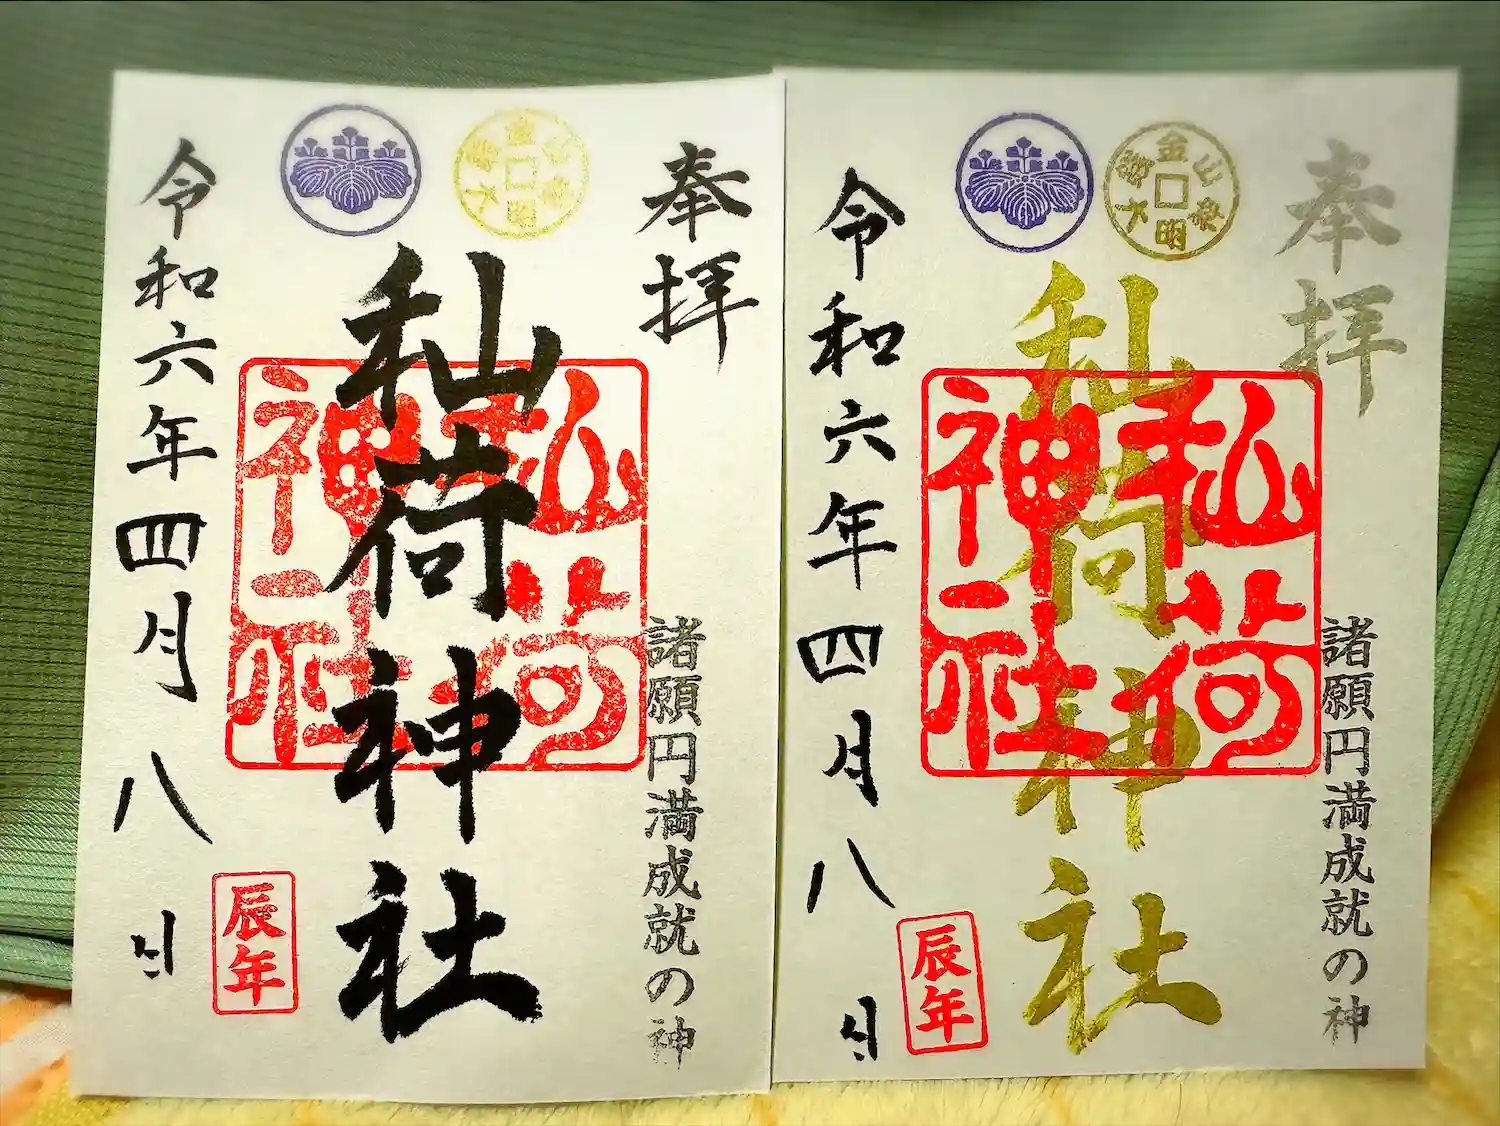 奉拝
諸願円満成就の神
秈荷神社
秈荷
神社
令和六年四月八日
辰年
奉拝
諸願円満成就の神
秈荷神社
秈荷
神社
令和六年四月八日
辰年